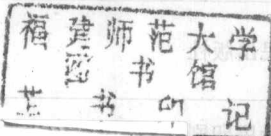 福建师范大学
书馆
书印记